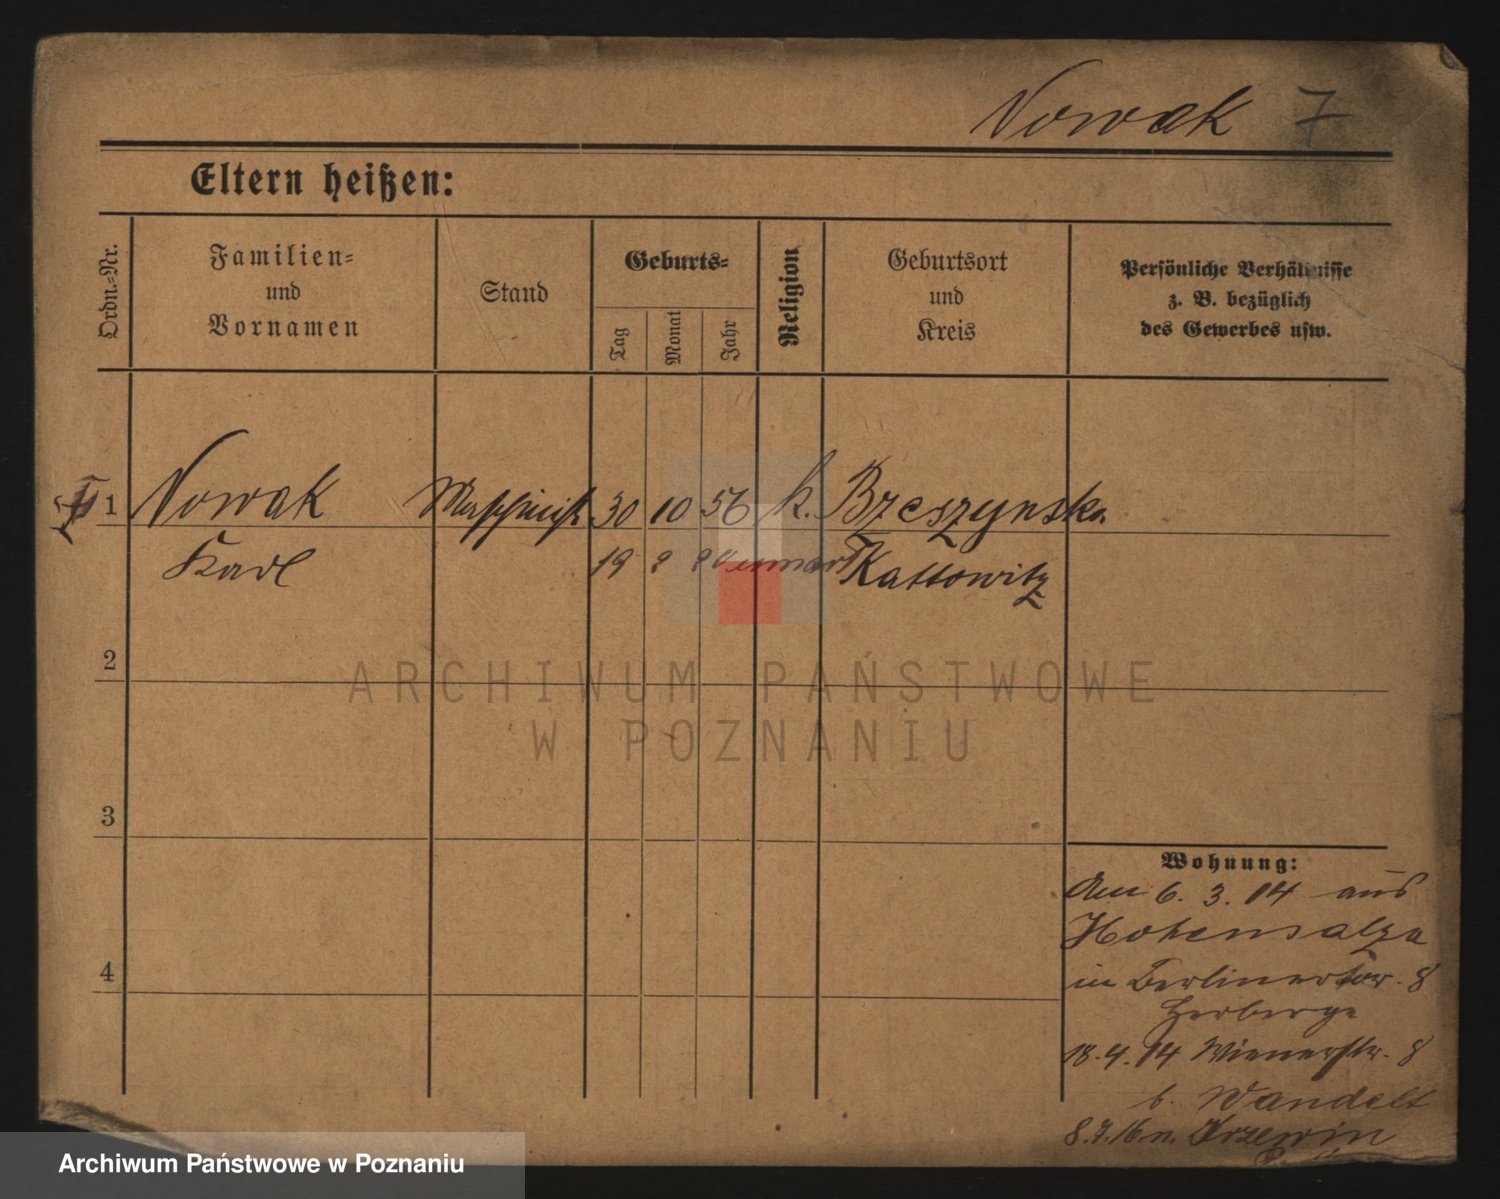 Nowak 7
Eltern heißen:
Ordn.-Nr.
Familien-
und
Vornamen
Stand
Geburts-
Tag
Monat
Jahr
Religion
Geburtsort
und
Kreis
Persönliche Verhältnisse
z. B. bezüglich
des Gewerbes usw.
1 Nowak Maschinist 30 10 56 k. Brzeszynska
Karl 19 Kattowitz
2
ARCHIWUM PAŃSTWOWE
W POZNANIU
3
4
Wohnung:
Am 6. 3. 14 aus
Hohensalza
in Berlinertor. 8
Herberge
18.4.14 Wienerstr. 8
b. Wandelt
8.9.16 n. Krzewin
Archiwum Państwowe w Poznaniu